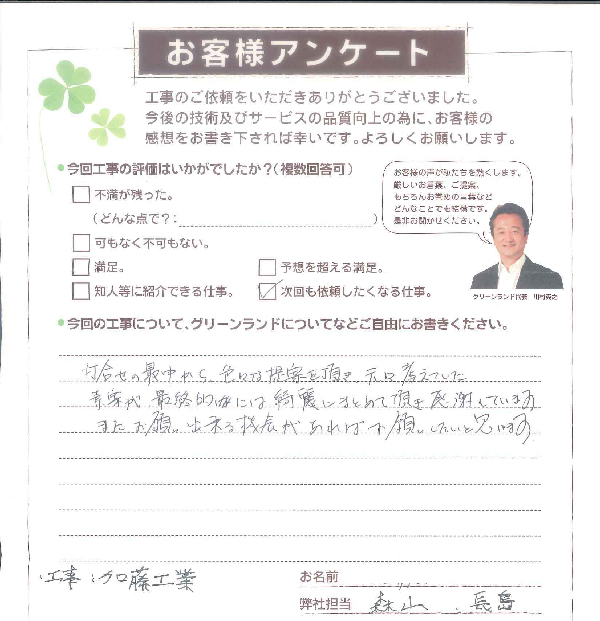 お客様アンケート
工事のご依頼をいただきありがとうございました。
今後の技術及びサービスの品質向上の為に、お客様の
感想をお書き下されば幸いです。よろしくお願いします。
●今回工事の評価はいかがでしたか?(複数回答可)
お客様の声が私たちを熱くします。
厳しいお言葉、ご提案、
もちろんお褒めの言葉など
どんなことでも結構です。
是非お聞かせください。
不満が残った。
(どんな点で?: )
可もなく不可もない。
満足。
予想を超える満足。
知人等に紹介できる仕事。
次回も依頼したくなる仕事。
グリーンランド代表
●今回の工事について、グリーンランドについてなどご自由にお書きください。
打合せの最中から、色々な提案を頂き、元々考えていた
最終的には綺麗にまとめて頂き感謝しています
またお願い出来る機会があればお願いしたいと思います
工事:加藤工業
お名前
弊社担当 森山、長島